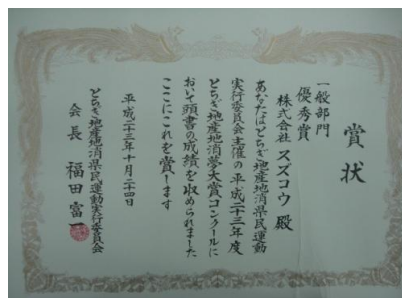 賞状
一般部門
優秀賞
株式会社 スズコウ 殿
あなたはとちぎ地産地消県民運動
実行委員会主催の平成二十三年度
とちぎ地産地消夢大賞コンクールに
おいて頭書の成績を収められました
ここにこれを賞します
平成二十三年十月二十四日
とちぎ地産地消県民運動実行委員会
会長 福田富一